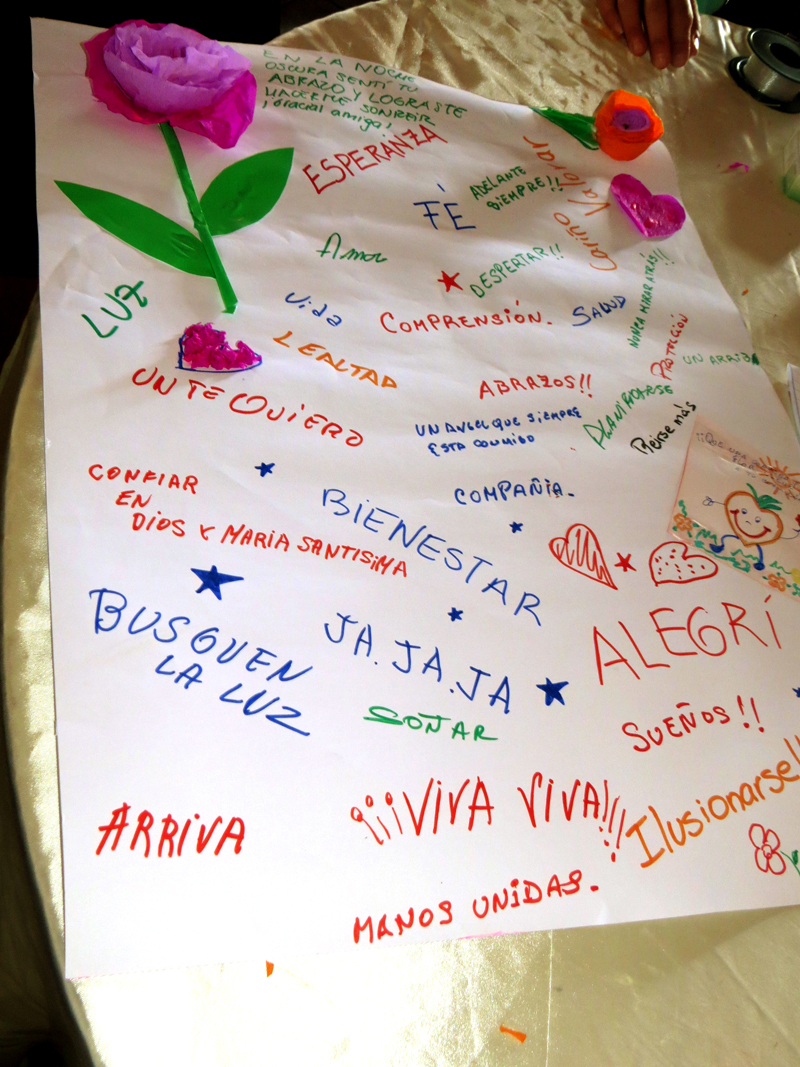 EN LA NOCHE
OSCURA SENTI TU
ABRAZO Y LOGRASTE
HACERME SONREIR
¡Gracias amiga!
ESPERANZA
FÉ
ADELANTE
SIEMPRE!!
Valorar
Cariño
Amor
DESPERTAR!!
NUNCA MIRAR ATRÁS!!
LUZ
Vida
COMPRENSIÓN.
SALUD
PROTECCION
UN ARRIBA
LEALTAD
UN TE QUIERO
ABRAZOS!!
PLANIFICARSE
Reirse más
UN ANGEL QUE SIEMPRE
ESTA CONMIGO
CONFIAR
EN
DIOS Y MARIA SANTISIMA
BIENESTAR
COMPAÑIA.
BUSQUEN
LA LUZ
JA.JA.JA
ALEGRÍ
SOÑAR
SUEÑOS!!
ARRIVA
¡¡¡VIVA VIVA!!!
Ilusionarse!!
MANOS UNIDAS.